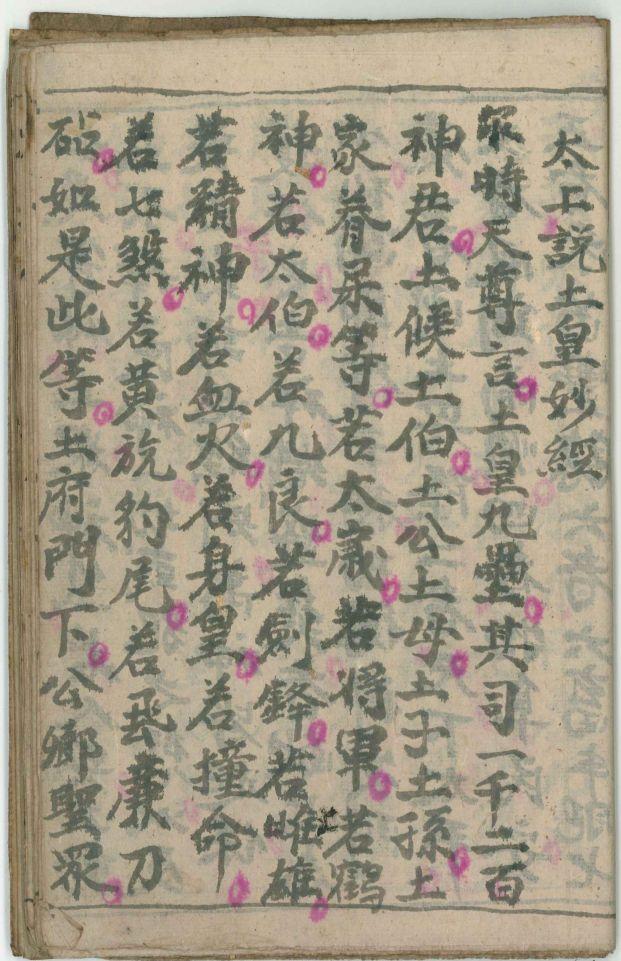 太上說土皇妙經
尒時天尊言土皇九壘其司一千二百
神君土候土伯土公土母土子土孫土
家眷屬等若太歲若將軍若鶴
神若太伯若九良若劍鋒若雌雄
若精神若血火若身皇若撞命
若七煞若黃旛豹尾若飛廉刀
砧如是此等土府門下公卿聖眾